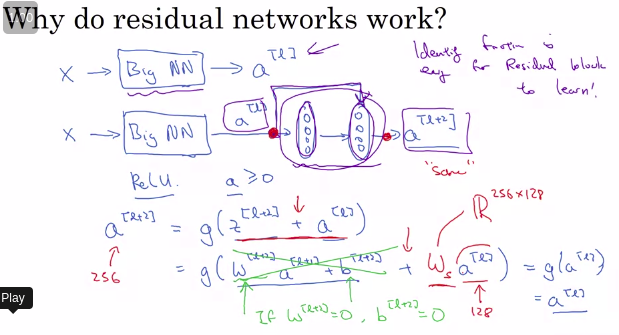 Why do residual networks work?
X → Big NN → a^[l]
Identity function is
easy for Residual block
to learn!
X → Big NN → a^[l] → → a^[l+2]
"same"
ReLU. a ≥ 0
a^[l+2] = g(z^[l+2] + a^[l])
ℝ^256×128
256
= g(W^[l+2] a^[l+1] + b^[l+2] + W_s a^[l]) = g(a^[l])
= a^[l]
If W^[l+2]=0, b^[l+2]=0
128
Play